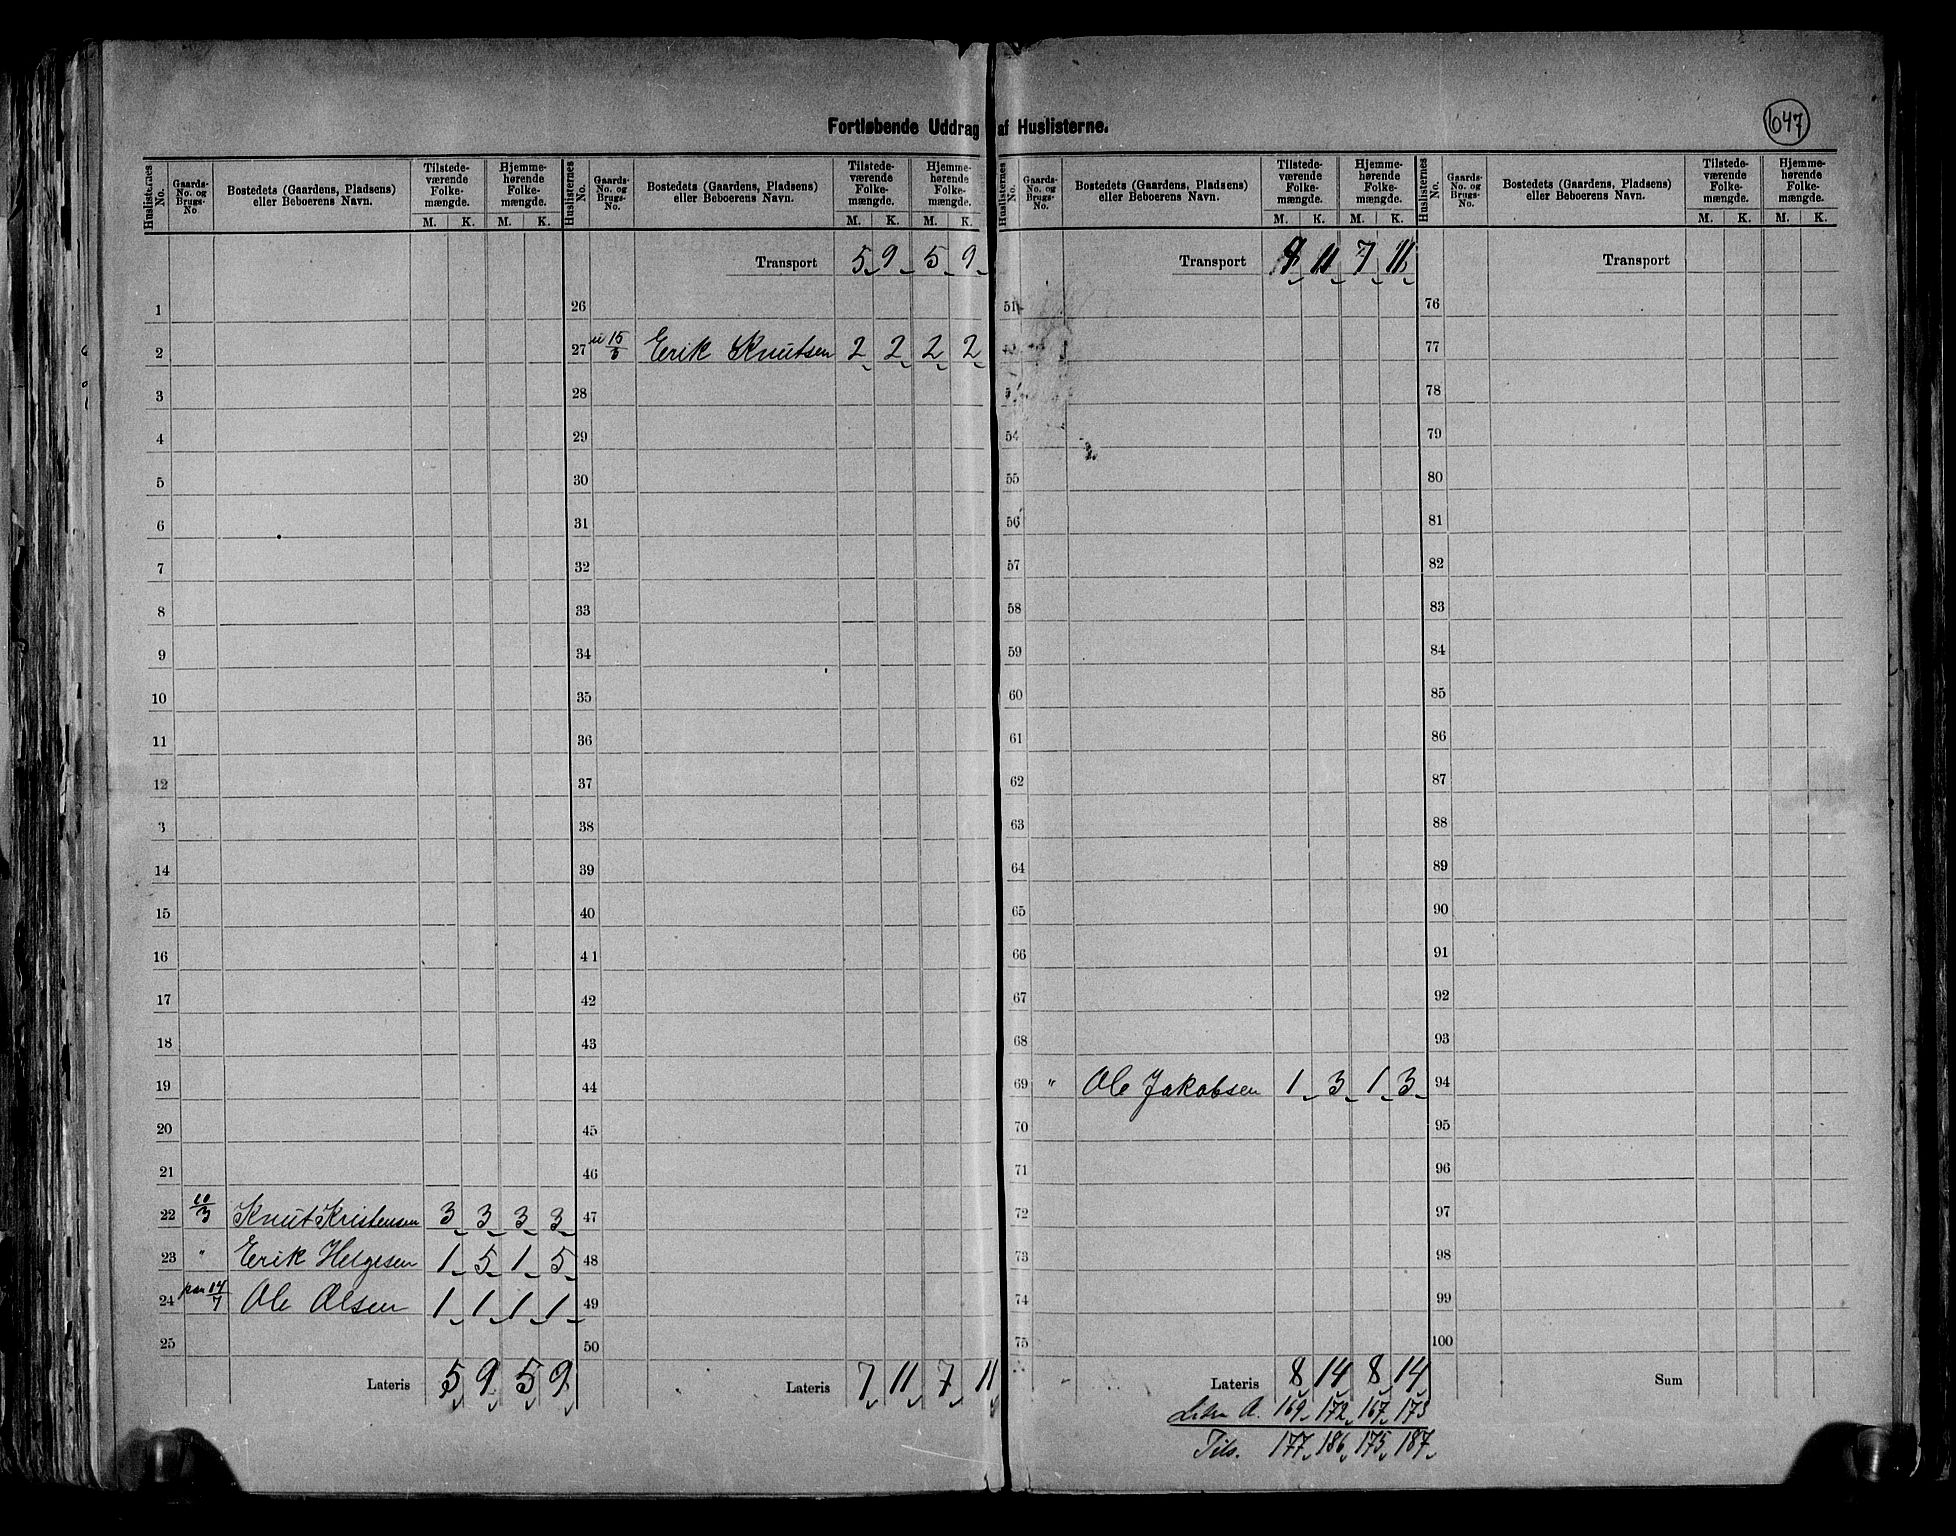 647
Fortløbende Uddrag af Huslisterne.
Huslisternes No. Gaards-No. og Brugs-No. Bostedets (Gaardens, Pladsens) eller Beboerens Navn. Tilstedeværende Folkemængde. M. K. Hjemmehørende Folkemængde. M. K.
1
2
3
4
5
6
7
8
9
10
11
12
3
14
15
16
17
18
19
20
21
22 10/3 Knut Kristensen 3 3 3 3
23 " Erik Helgesen 1 5 1 5
24 14/7 Ole Olsen 1 1 1 1
25
Lateris 5 9 5 9
Huslisternes No. Gaards-No. og Brugs-No. Bostedets (Gaardens, Pladsens) eller Beboerens Navn. Tilstedeværende Folkemængde. M. K. Hjemmehørende Folkemængde. M. K.
Transport 5 9 5 9
26
27 15/3 Erik Knutsen 2 2 2 2
28
29
30
31
32
33
34
35
36
37
38
39
40
41
42
43
44
45
46
47
48
49
50
Lateris 7 11 7 11
Huslisternes No. Gaards-No. og Brugs-No. Bostedets (Gaardens, Pladsens) eller Beboerens Navn. Tilstedeværende Folkemængde. M. K. Hjemmehørende Folkemængde. M. K.
Transport 7 11 7 11
51
54
55
56
57
58
59
60
61
62
63
64
65
66
67
68
69 " Ole Jakobsen 1 3 1 3
70
71
72
73
74
75
Lateris 8 14 8 14
Litra A. 169 172 167 173
Tils. 177 186 175 187
Huslisternes No. Gaards-No. og Brugs-No. Bostedets (Gaardens, Pladsens) eller Beboerens Navn. Tilstedeværende Folkemængde. M. K. Hjemmehørende Folkemængde. M. K.
Transport
76
77
78
79
80
81
82
83
84
85
86
87
88
89
90
91
92
93
94
95
96
97
98
99
100
Sum